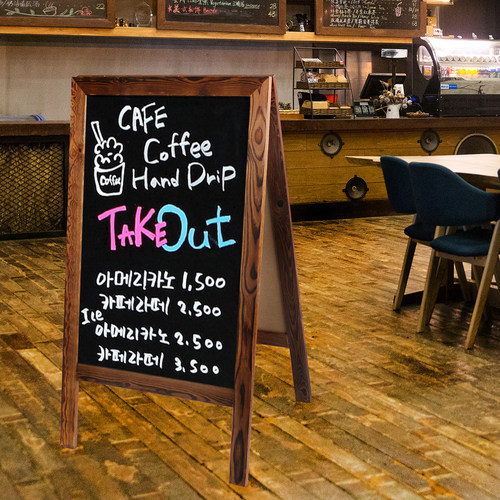 CAFE
Coffee
Hand Drip
Coffee
TAKE Out
아메리카노 1,500
카페라떼 2.500
Ice
아메리카노 2.500
카페라떼 3,500